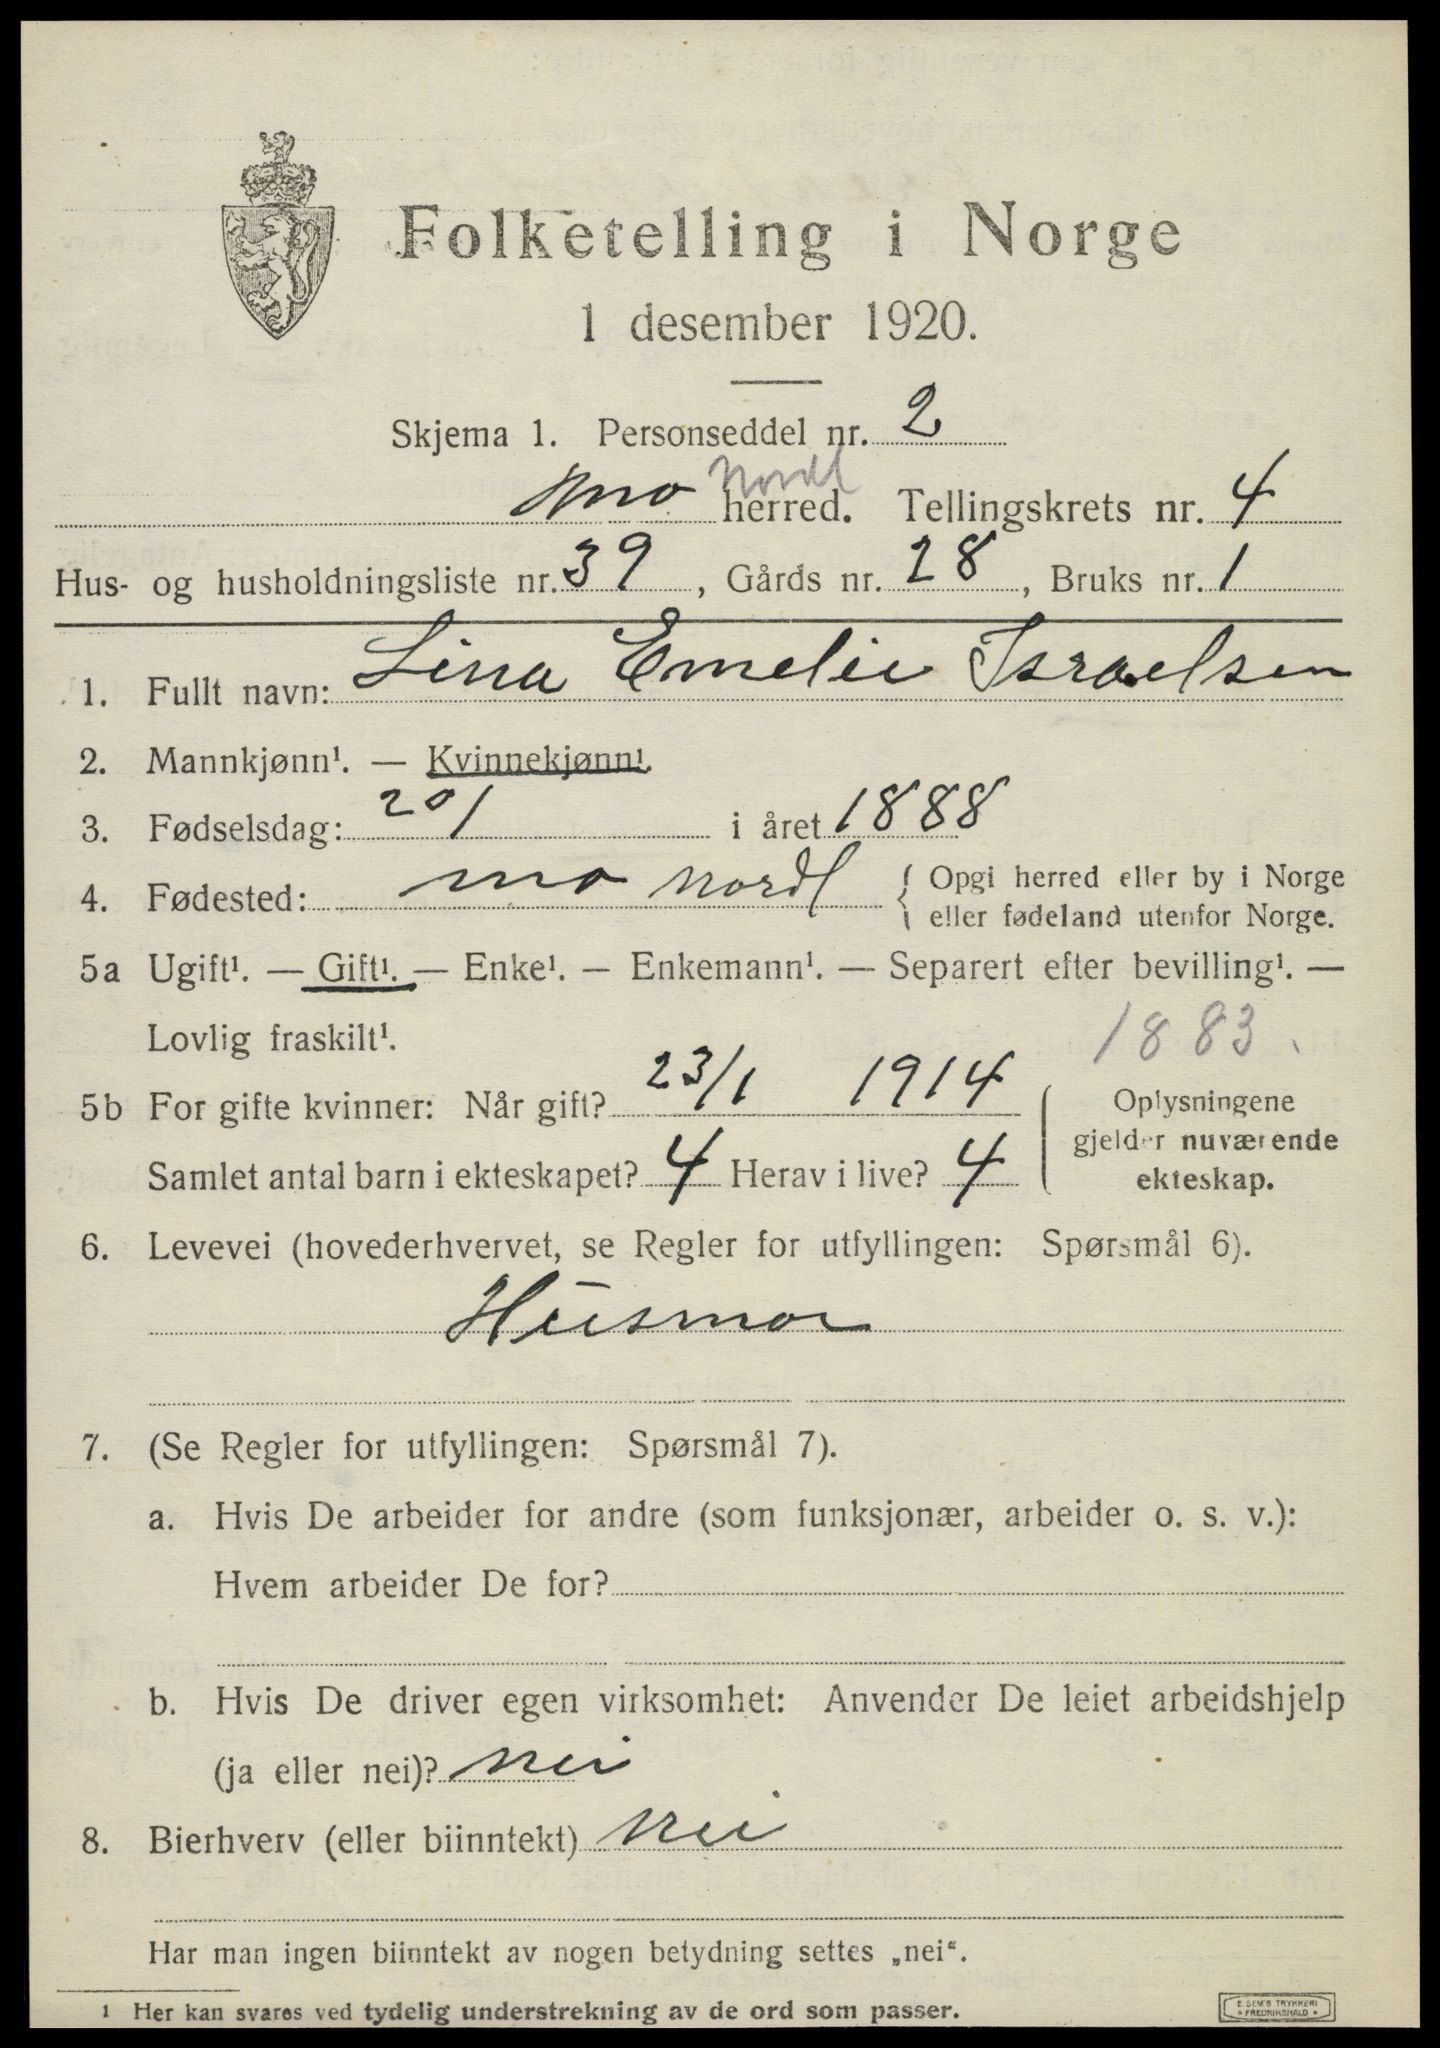 Folketelling i Norge
1 desember 1920.
Skjema 1. Personseddel nr. 2
Nordl
Mo herred. Tellingskrets nr. 4
Hus- og husholdningsliste nr. 39, Gårds nr. 28, Bruks nr. 1
1. Fullt navn: Lina Emelie Israelsen
2. Mannkjønn¹. — Kvinnekjønn¹.
3. Fødselsdag: 20/1 i året 1888
4. Fødested: Mo Nordl { Opgi herred eller by i Norge
eller fødeland utenfor Norge.
5a Ugift¹. — Gift¹. — Enke¹. — Enkemann¹. — Separert efter bevilling¹. —
Lovlig fraskilt¹.
1883.
5b For gifte kvinner: Når gift? 23/1 1914
Samlet antal barn i ekteskapet? 4 Herav i live? 4
Oplysningene
gjelder nuværende
ekteskap.
6. Levevei (hovederhvervet, se Regler for utfyllingen: Spørsmål 6).
Husmor
7. (Se Regler for utfyllingen: Spørsmål 7).
a. Hvis De arbeider for andre (som funksjonær, arbeider o. s. v.):
Hvem arbeider De for?
b. Hvis De driver egen virksomhet: Anvender De leiet arbeidshjelp
(ja eller nei)? nei
8. Bierhverv (eller biinntekt) Nei
Har man ingen biinntekt av nogen betydning settes „nei“.
1 Her kan svares ved tydelig understrekning av de ord som passer.
E. SEM'S TRYKKERI
FREDRIKSHALD